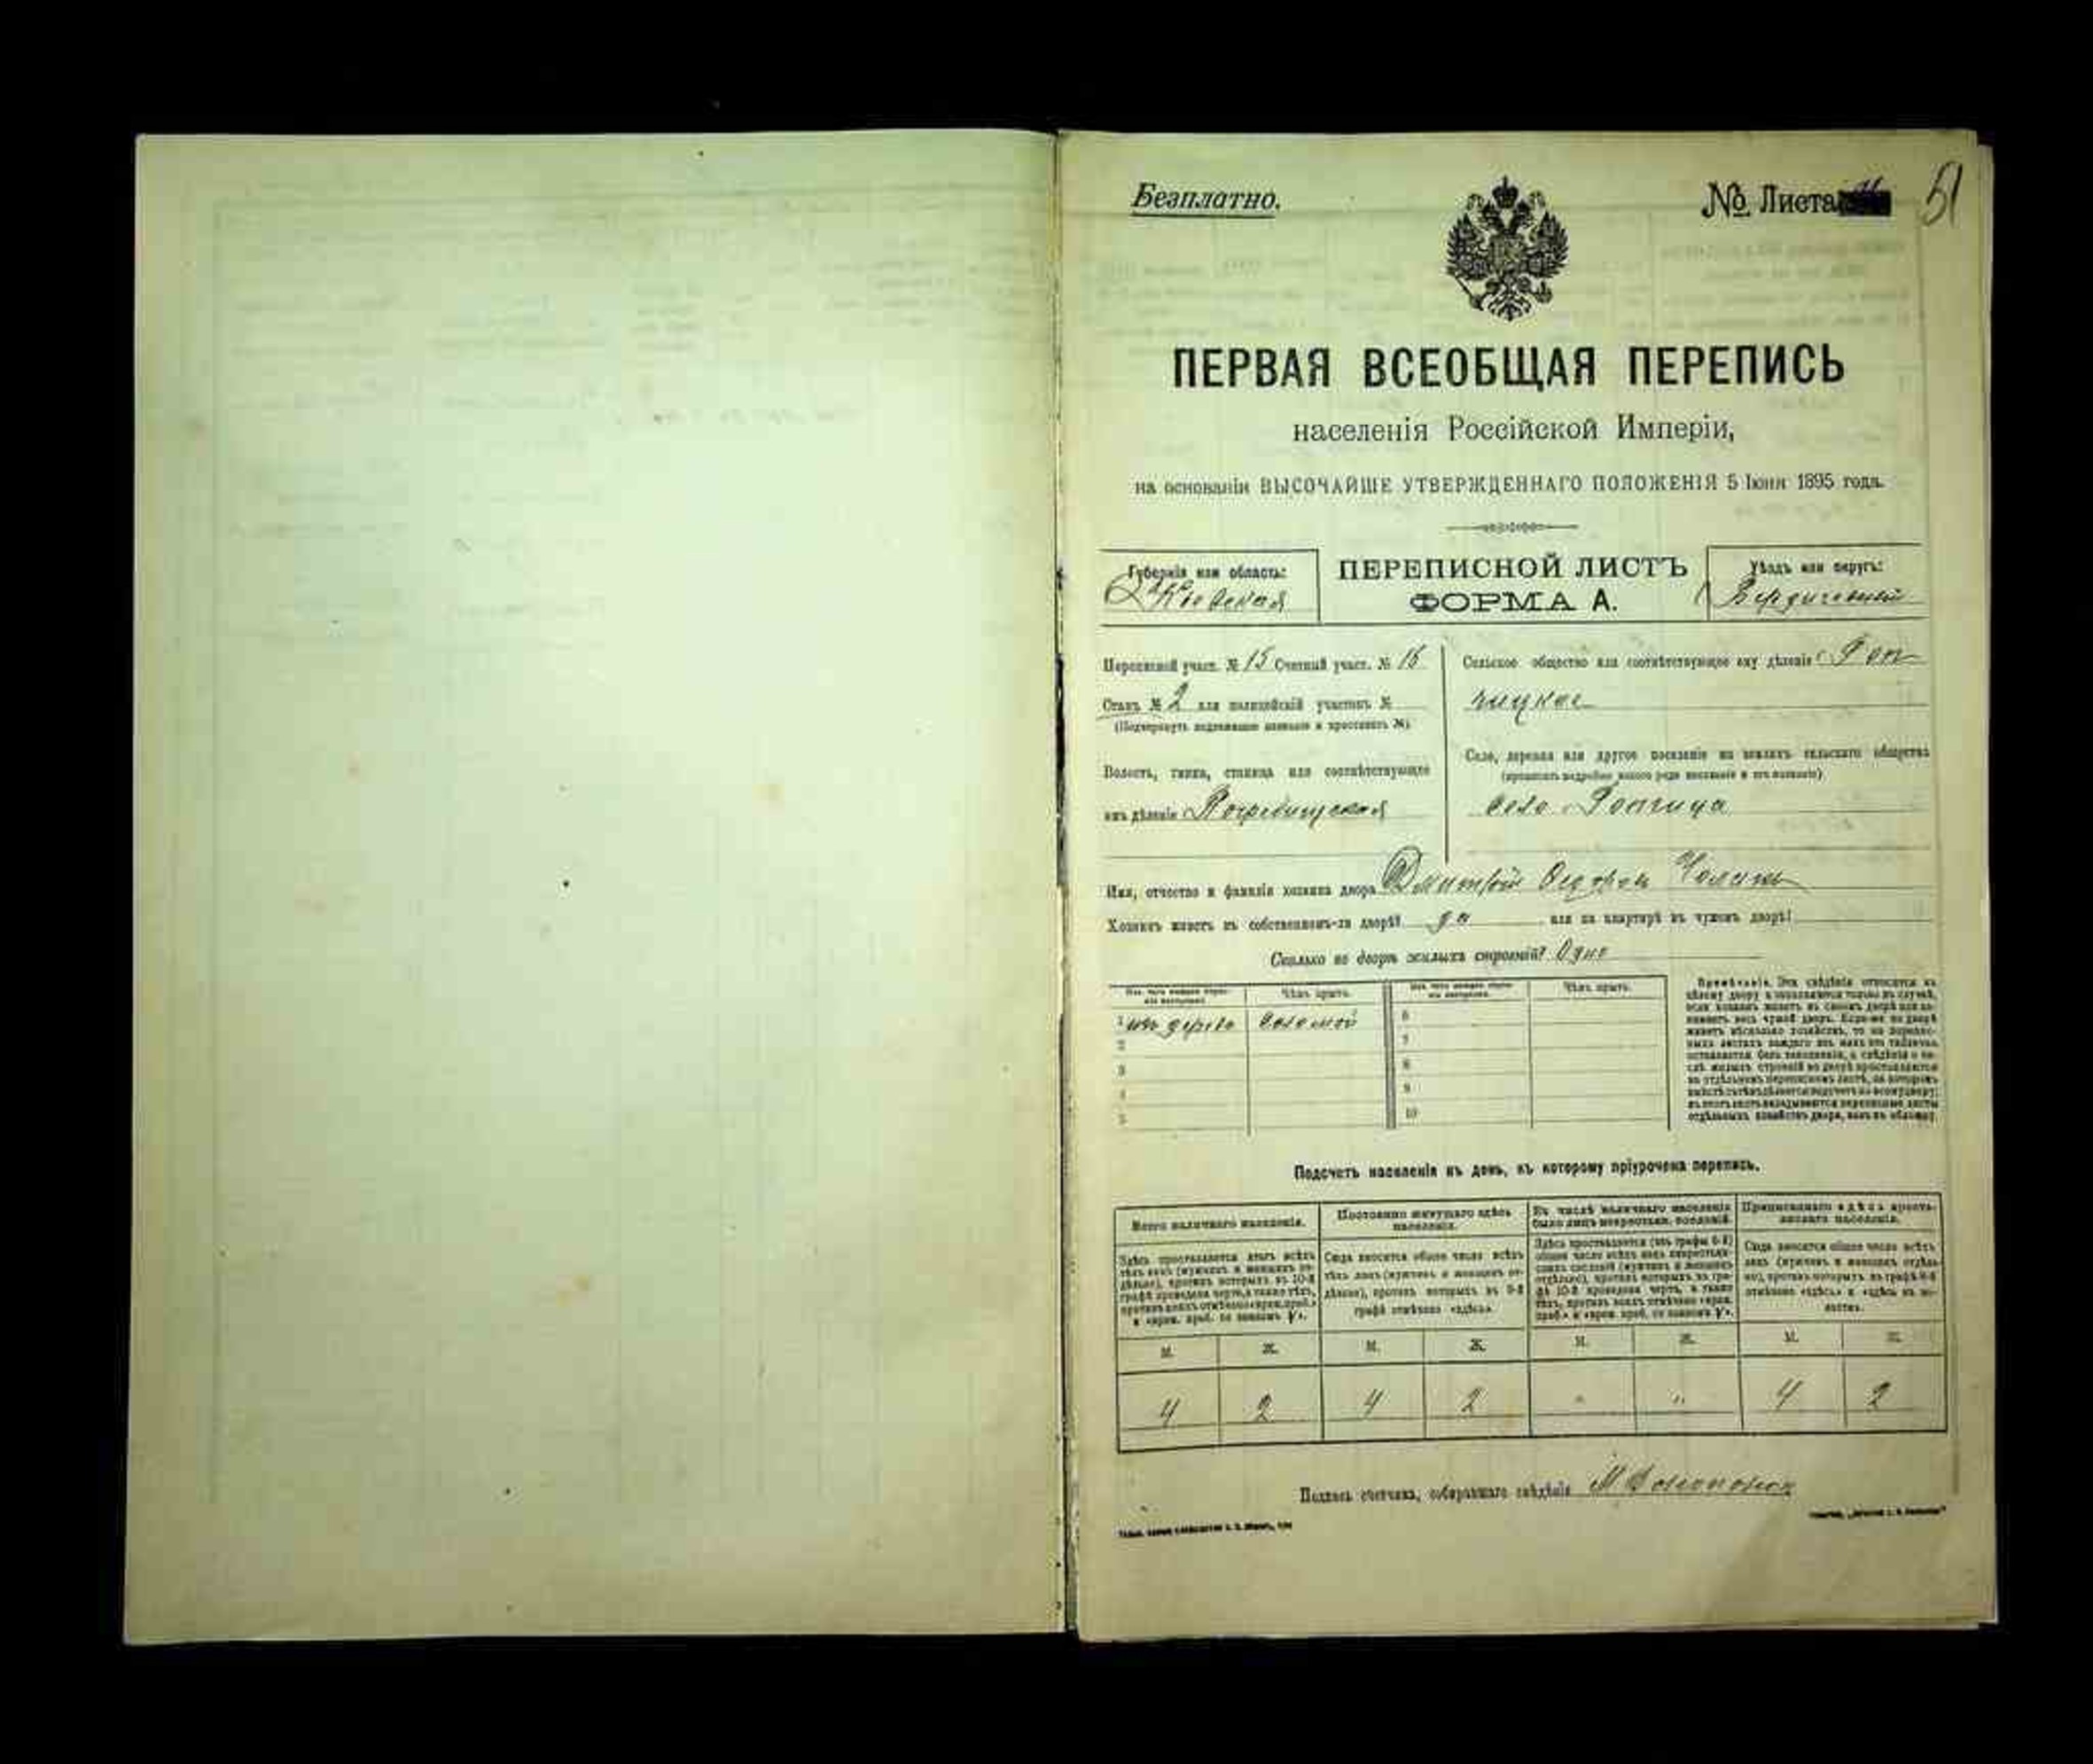 Безплатно.
№ Листа 51
ПЕРВАЯ ВСЕОБЩАЯ ПЕРЕПИСЬ
населенія Россійской Имперіи,
на основаніи ВЫСОЧАЙШЕ УТВЕРЖДЕННАГО ПОЛОЖЕНІЯ 5 Іюня 1895 года.
Губернія или область:
Кіевская
ПЕРЕПИСНОЙ ЛИСТЪ
ФОРМА А.
Уѣздъ или округъ:
Бердичевскій
Переписной участ. № 15 Счетный участ. № 16
Станъ № 2 или полицейскій участокъ №
(Подчеркнуть подлежащее названіе и проставить №)
Волость, гмина, станица или соотвѣтствующее
имъ дѣленіе Погребищская
Сельское общество или соотвѣтствующее ему дѣленіе Роп
чицкое
Село, деревня или другое поселеніе на земляхъ сельскаго общества
(прописать подробно какого рода поселеніе и его названіе)
село Ропчица
Имя, отчество и фамилія хозяина двора Дмитрій
Хозяинъ живетъ въ собственномъ-ли дворѣ? да или на квартирѣ въ чужомъ дворѣ?
Сколько во дворѣ жилыхъ строеній? Одно
Чѣмъ крыто.
Чѣмъ крыто.
1 изъ дерева соломой
6
2
7
3
8
4
9
5
10
Примѣчаніе. Эти свѣдѣнія относятся къ
цѣлому двору и заполняются только въ случаѣ,
если хозяинъ живетъ въ своемъ дворѣ или за-
нимаетъ весь чужой дворъ. Если-же во дворѣ
живетъ нѣсколько хозяйствъ, то на перепис-
ныхъ листахъ каждаго изъ нихъ эта табличка
оставляется безъ заполненія, а свѣдѣнія о чи-
слѣ жилыхъ строеній во дворѣ проставляются
на отдѣльномъ переписномъ листѣ, на которомъ
въ этотъ листъ вкладываются переписные листы
отдѣльныхъ хозяйствъ двора, какъ въ обложку.
Подсчетъ населенія въ день, къ которому пріурочена перепись.
Всего наличнаго населенія.
Здѣсь проставляется итогъ всѣхъ
тѣхъ лицъ (мужчинъ и женщинъ от-
дѣльно), противъ которыхъ въ 10-й
графѣ проведена черта, а также тѣхъ,
противъ коихъ отмѣчено «врем. преб.»
Постоянно живущаго здѣсь
населенія.
Сюда вносится общее число всѣхъ
тѣхъ лицъ (мужчинъ и женщинъ от-
дѣльно), противъ которыхъ въ 9-й
графѣ отмѣчено «здѣсь».
Въ числѣ наличнаго населенія
было лицъ некрестьян. сословій.
Здѣсь проставляется (изъ графы 6-й)
общее число всѣхъ лицъ некрестьян-
скихъ сословій (мужчинъ и женщинъ
отдѣльно), противъ которыхъ въ гра-
фѣ 10-й проведена черта, а также
Приписаннаго здѣсь кресть-
янскаго населенія.
Сюда вносится общее число всѣхъ
лицъ (мужчинъ и женщинъ отдѣль-
но), противъ которыхъ въ графѣ 8-й
отмѣчено «здѣсь» и «здѣсь въ во-
лости».
М. Ж. М. Ж. М. Ж. М. Ж.
4 2 4 2 " " 4 2
Подпись счетчика, собиравшаго свѣдѣнія